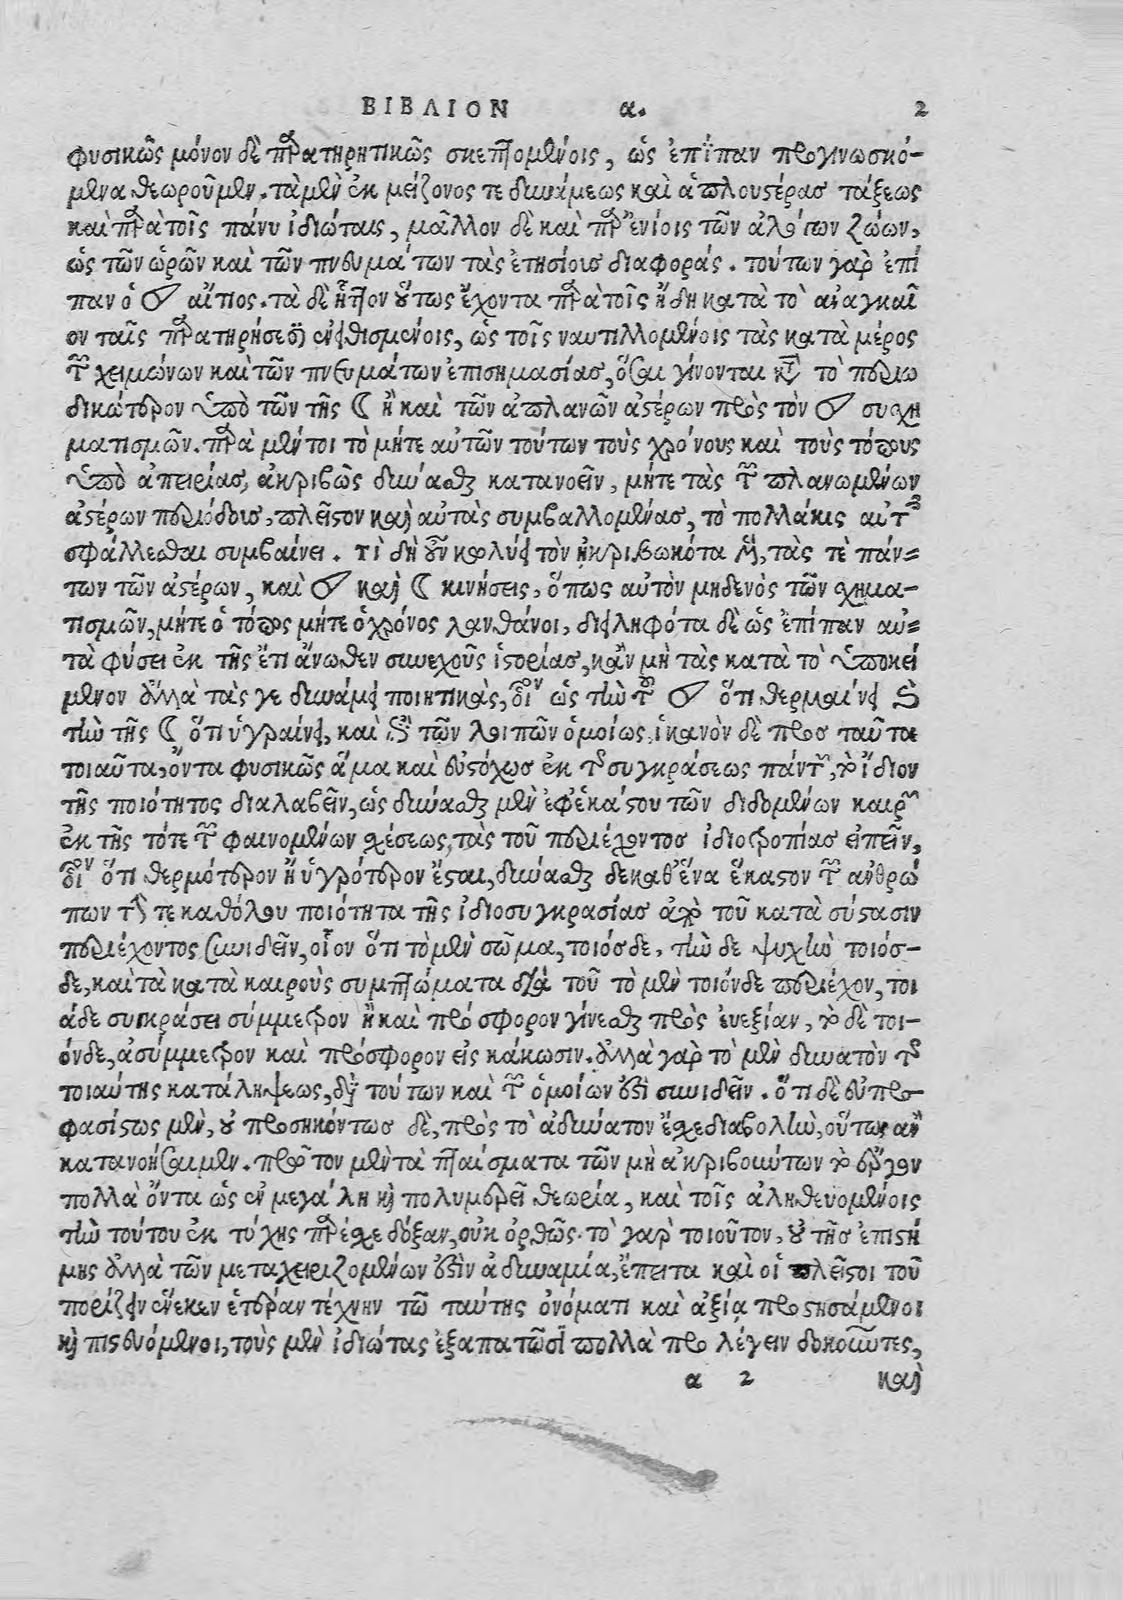 ΒΙΒΛΙΟΝ α. 2
φυσικῶς μόνον δὲ παρατηρητικῶς σκεπτομένοις, ὡς ἐπίπαν προγινωσκό-
μενα θεωροῦμεν. τὰ μὲν ἐκ μείζονός τε δυνάμεως καὶ ἁπλουστέρας τάξεως
καὶ παρὰ τοῖς πάνυ ἰδιώταις, μᾶλλον δὲ καὶ παρ' ἐνίοις τῶν ἀλόγων ζώων,
ὡς τῶν ὡρῶν καὶ τῶν πνευμάτων τὰς ἐτησίους διαφοράς. τούτων γὰρ ἐπί
παν ὁ ☉ αἴτιος. τὰ δὲ ἧττον οὕτως ἔχοντα παρὰ τοῖς ἤδη κατὰ τὸ ἀναγκαῖ
ον ταῖς παρατηρήσεσιν ἐνειθισμένοις, ὡς τοῖς ναυτιλλομένοις τὰς κατὰ μέρος
τῶν χειμώνων καὶ τῶν πνευμάτων ἐπισημασίας, ὅσαι γίνονται κατὰ τὸ περιω
δικώτερον ὑπὸ τῶν τῆς ☾ ἢ καὶ τῶν ἀπλανῶν ἀστέρων πρὸς τὸν ☉ συσχη
ματισμῶν. παρὰ μέντοι τὸ μήτε αὐτῶν τούτων τοὺς χρόνους καὶ τοὺς τόπους
ὑπὸ ἀπειρίας, ἀκριβῶς δύνασθαι κατανοεῖν, μήτε τὰς τῶν πλανωμένων
ἀστέρων περιόδους, πλεῖστον καὶ αὐτὰς συμβαλλομένας, τὸ πολλάκις αὐτοῖς
σφάλλεσθαι συμβαίνει. τί δὴ οὖν κωλύει τὸν ἠκριβωκότα μὲν, τὰς τὲ πάν=
των τῶν ἀστέρων, καὶ ☉ καὶ ☾ κινήσεις, ὅπως αὐτὸν μηδενὸς τῶν σχημα-
τισμῶν, μήτε ὁ τόπος μήτε ὁ χρόνος λανθάνοι, διειληφότα δὲ ὡς ἐπίπαν αὐ=
τὰ φύσει ἐκ τῆς ἔτι ἄνωθεν συνεχοῦς ἱστορίας, κἂν μὴ τὰς κατὰ τὸ ὑποκεί
μενον ἀλλὰ τὰς γε δυνάμει ποιητικάς, οἷον ὡς τὴν τοῦ ☉ ὅτι θερμαίνει καὶ
τὴν τῆς ☾ ὅτι ὑγραίνει, καὶ ἐπὶ τῶν λοιπῶν ὁμοίως, ἱκανὸν δὲ προσ ταῦτα
τοιαῦτα, ὄντα φυσικῶς ἅμα καὶ εὐστόχως ἐκ τῆς συγκράσεως πάντων, τὸ ἴδιον
τῆς ποιότητος διαλαβεῖν, ὡς δύνασθαι μὲν ἐφ' ἑκάστου τῶν διδομένων καιρῶν
ἐκ τῆς τότε τῶν φαινομένων σχέσεως, τὰς τοῦ περιέχοντος ἰδιοτροπίας εἰπεῖν,
οἷον ὅτι θερμότερον ἢ ὑγρότερον ἔσται, δύνασθαι δὲ καθ' ἕνα ἕκαστον τῶν ἀνθρώ
πων τήν τε καθόλου ποιότητα τῆς ἰδιοσυγκρασίας ἀπὸ τοῦ κατὰ σύστασιν
περιέχοντος συνιδεῖν, οἷον ὅτι τὸ μὲν σῶμα, τοιόσδε, τὴν δε ψυχὴν τοιόσ-
δε, καὶ τὰ κατὰ καιροὺς συμπτώματα διὰ τοῦ τὸ μὲν τοιόνδε περιέχον, τοι
άδε συγκράσει σύμμετρον ἢ καὶ πρόσφορον γίνεσθαι πρὸς εὐεξίαν, τὸ δὲ τοι-
όνδε, ἀσύμμετρον καὶ πρόσφορον εἰς κάκωσιν. ἀλλὰ γὰρ τὸ μὲν δυνατὸν τῆς
τοιαύτης καταλήψεως, διὰ τούτων καὶ τῶν ὁμοίων ἐστὶ συνιδεῖν. ὅτι δὲ εὐπρο-
φασίστως μὲν, οὐ προσηκόντως δὲ, πρὸς τὸ ἀδύνατον ἔσχε διαβολὴν, οὕτως ἂν
κατανοήσαιμεν. πρῶτον μὲν τὰ πταίσματα τῶν μὴ ἀκριβούντων τὸ ἔργον
πολλὰ ὄντα ὡς ἐν μεγάλῃ καὶ πολυμερεῖ θεωρίᾳ, καὶ τοῖς ἀληθευομένοις
τὴν τούτου ἐκ τύχης παρέσχε δόξαν, οὐκ ὀρθῶς. τὸ γὰρ τοιοῦτον, οὐ τῆς ἐπιστή
μης ἀλλὰ τῶν μεταχειριζομένων ἐστὶν ἀδυναμία, ἔπειτα καὶ οἱ πλεῖστοι τοῦ
πορίζειν ἕνεκεν ἑτέραν τέχνην τῷ ταύτης ὀνόματι καὶ ἀξίᾳ προστησάμενοι
καὶ πιστευόμενοι, τοὺς μὲν ἰδιώτας ἐξαπατῶσι πολλὰ προλέγειν δοκοῦντες,
α 2 καὶ